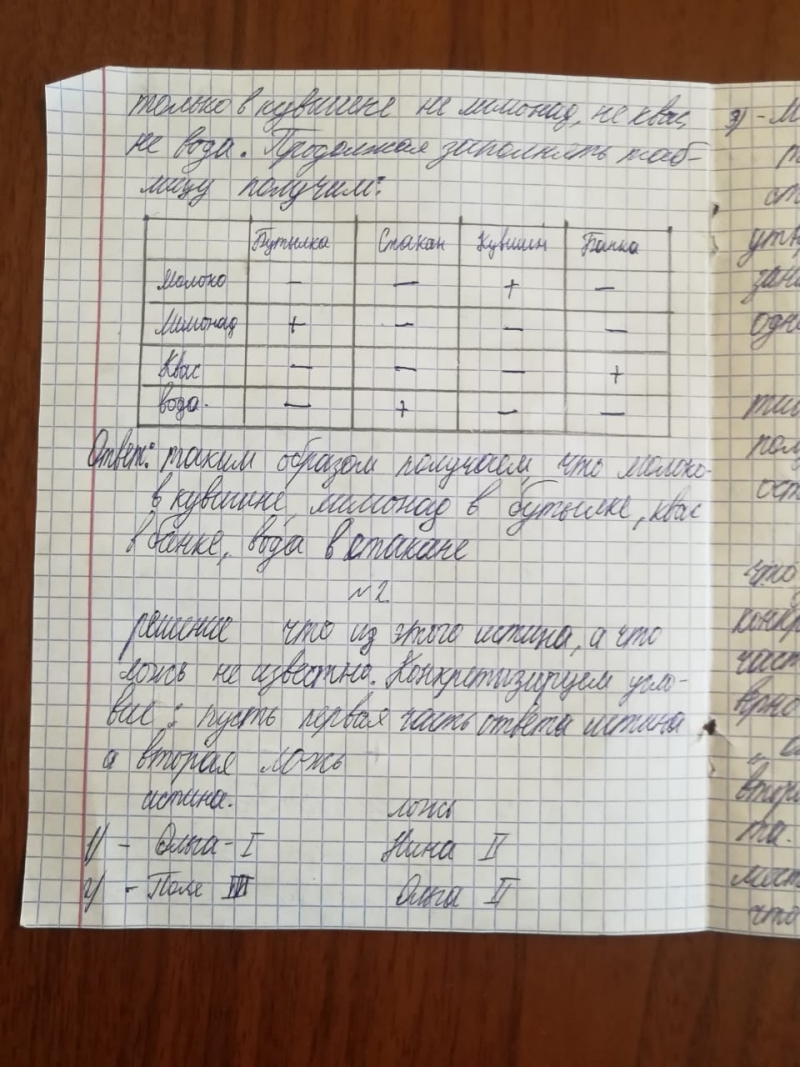 только в кувшине не лимонад, не квас,
не вода. Продолжая заполнять таб-
лицу получим:
Бутылка Стакан Кувшин Банка
Молоко — — + —
Лимонад + — — —
Квас — — — +
вода. — + — —
Ответ: таким образом получаем, что молоко-
в кувшине, лимонад в бутылке, квас
в банке, вода в стакане
№2
решение что из этого истина, а что
ложь не известно. Конкретизируем усло-
вие: пусть первая часть ответа истина,
а вторая ложь
истина. ложь
1) - Ольга - I Нина II
2) - Поля III Ольга II
3) - М
ст
утв
зан
одн
пол
ост
что
конкр
част
верно
втор
та.
мост
что